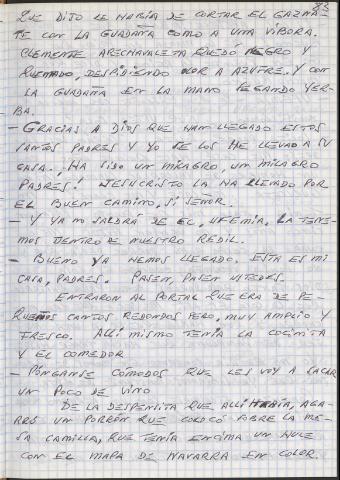 83
QUE DIJO LE HABÍA DE CORTAR EL GAZNA-
TE CON LA GUADAÑA COMO A UNA VÍBORA.
CLEMENTE ARECHAVALETA QUEDÓ NEGRO Y
QUEMADO, DESPIDIENDO OLOR A AZUFRE. Y CON
LA GUADAÑA EN LA MANO PEGANDO YER-
BA.
– GRACIAS A DIOS QUE HAN LLEGADO ESTOS
SANTOS PADRES Y YO SE LOS HE LLEVADO A SU
CASA. ¡HA SIDO UN MILAGRO, UN MILAGRO
PADRES! JESUCRISTO LA HA LLEVADO POR
EL BUEN CAMINO, SÍ SEÑOR.
– Y YA NO SALDRÁ DE EL, UFEMIA. LA TENE-
MOS DENTRO DE NUESTRO REDIL.
– BUENO YA HEMOS LLEGADO. ESTA ES MI
CASA, PADRES. PASEN, PASEN USTEDES.
ENTRARON AL PORTAL QUE ERA DE PE-
QUEÑOS CANTOS REDONDOS PERO, MUY AMPLIO Y
FRESCO. ALLÍ MISMO TENÍA LA COCINITA
Y EL COMEDOR
– PÓNGANSE CÓMODOS QUE LES VOY A SACAR
UN POCO DE VINO
DE LA DESPENSITA QUE ALLÍ HABÍA, AGA-
RRÓ UN PORRÓN QUE COLOCÓ SOBRE LA ME-
SA CAMILLA, QUE TENÍA ENCIMA UN HULE
CON EL MAPA DE NAVARRA EN COLOR.